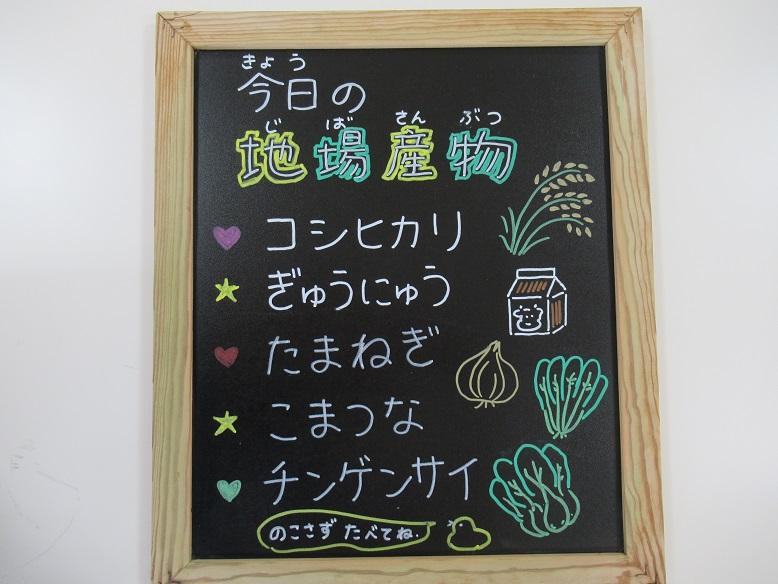 きょう
今日の
じ ば さん ぶつ
地場産物
コシヒカリ
ぎゅうにゅう
たまねぎ
こまつな
チンゲンサイ
のこさず たべてね.